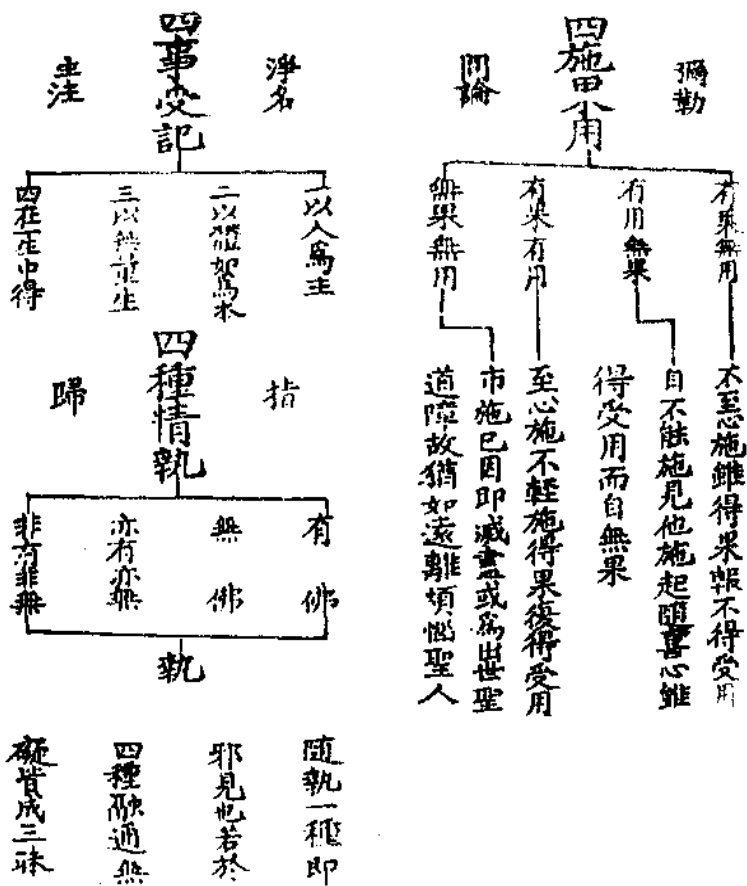 四施果用
彌勒
問論
有果無用
不至心施雖得果報不得受用
有用無果
自不能施見他施起隨喜心雖
得受用而自無果
有果有用
至心施不輕施得果復得受用
無果無用
市施已因即滅盡或為出世聖
道障故猶如遠離煩惱聖人
四事受記
淨名
生注
一以人為主
二以體如為本
三以無量生
四在正中得
四種情執
指
歸
有佛
無佛
亦有亦無
非有非無
執
隨執一種即
邪見也若於
四種融通無
礙皆成三昧